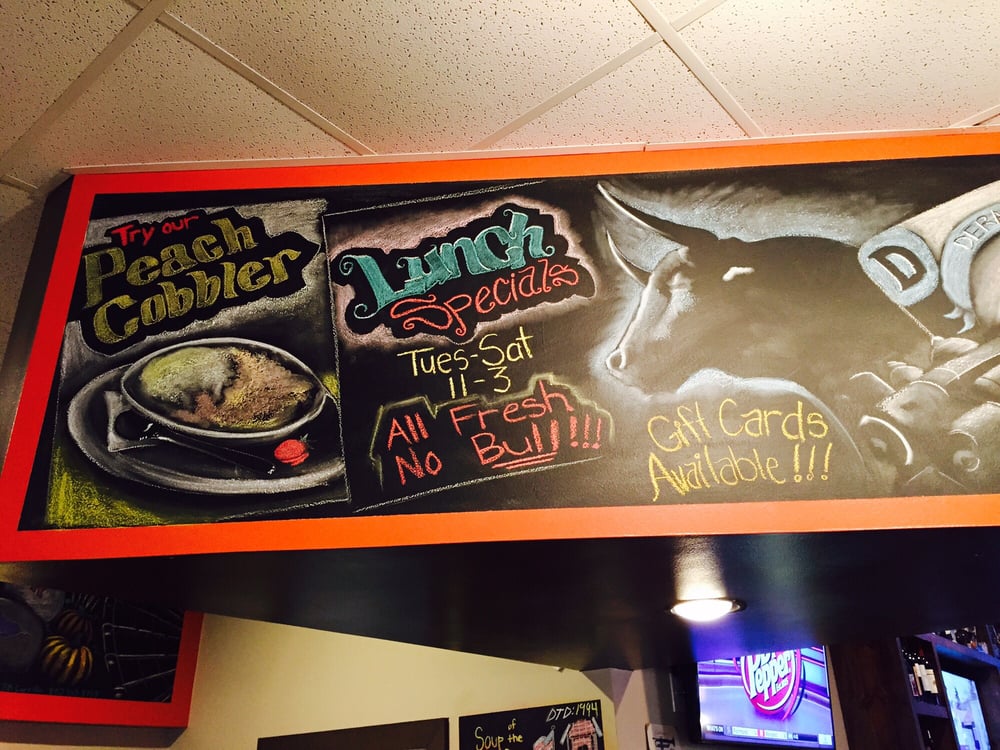 Try our
Peach
Cobbler
Lunch
Specials
Tues-Sat
11-3
All Fresh
No Bull!!!
Gift Cards
Available!!!
D
DER
Dr Pepper
DTD:1994
of
Soup the